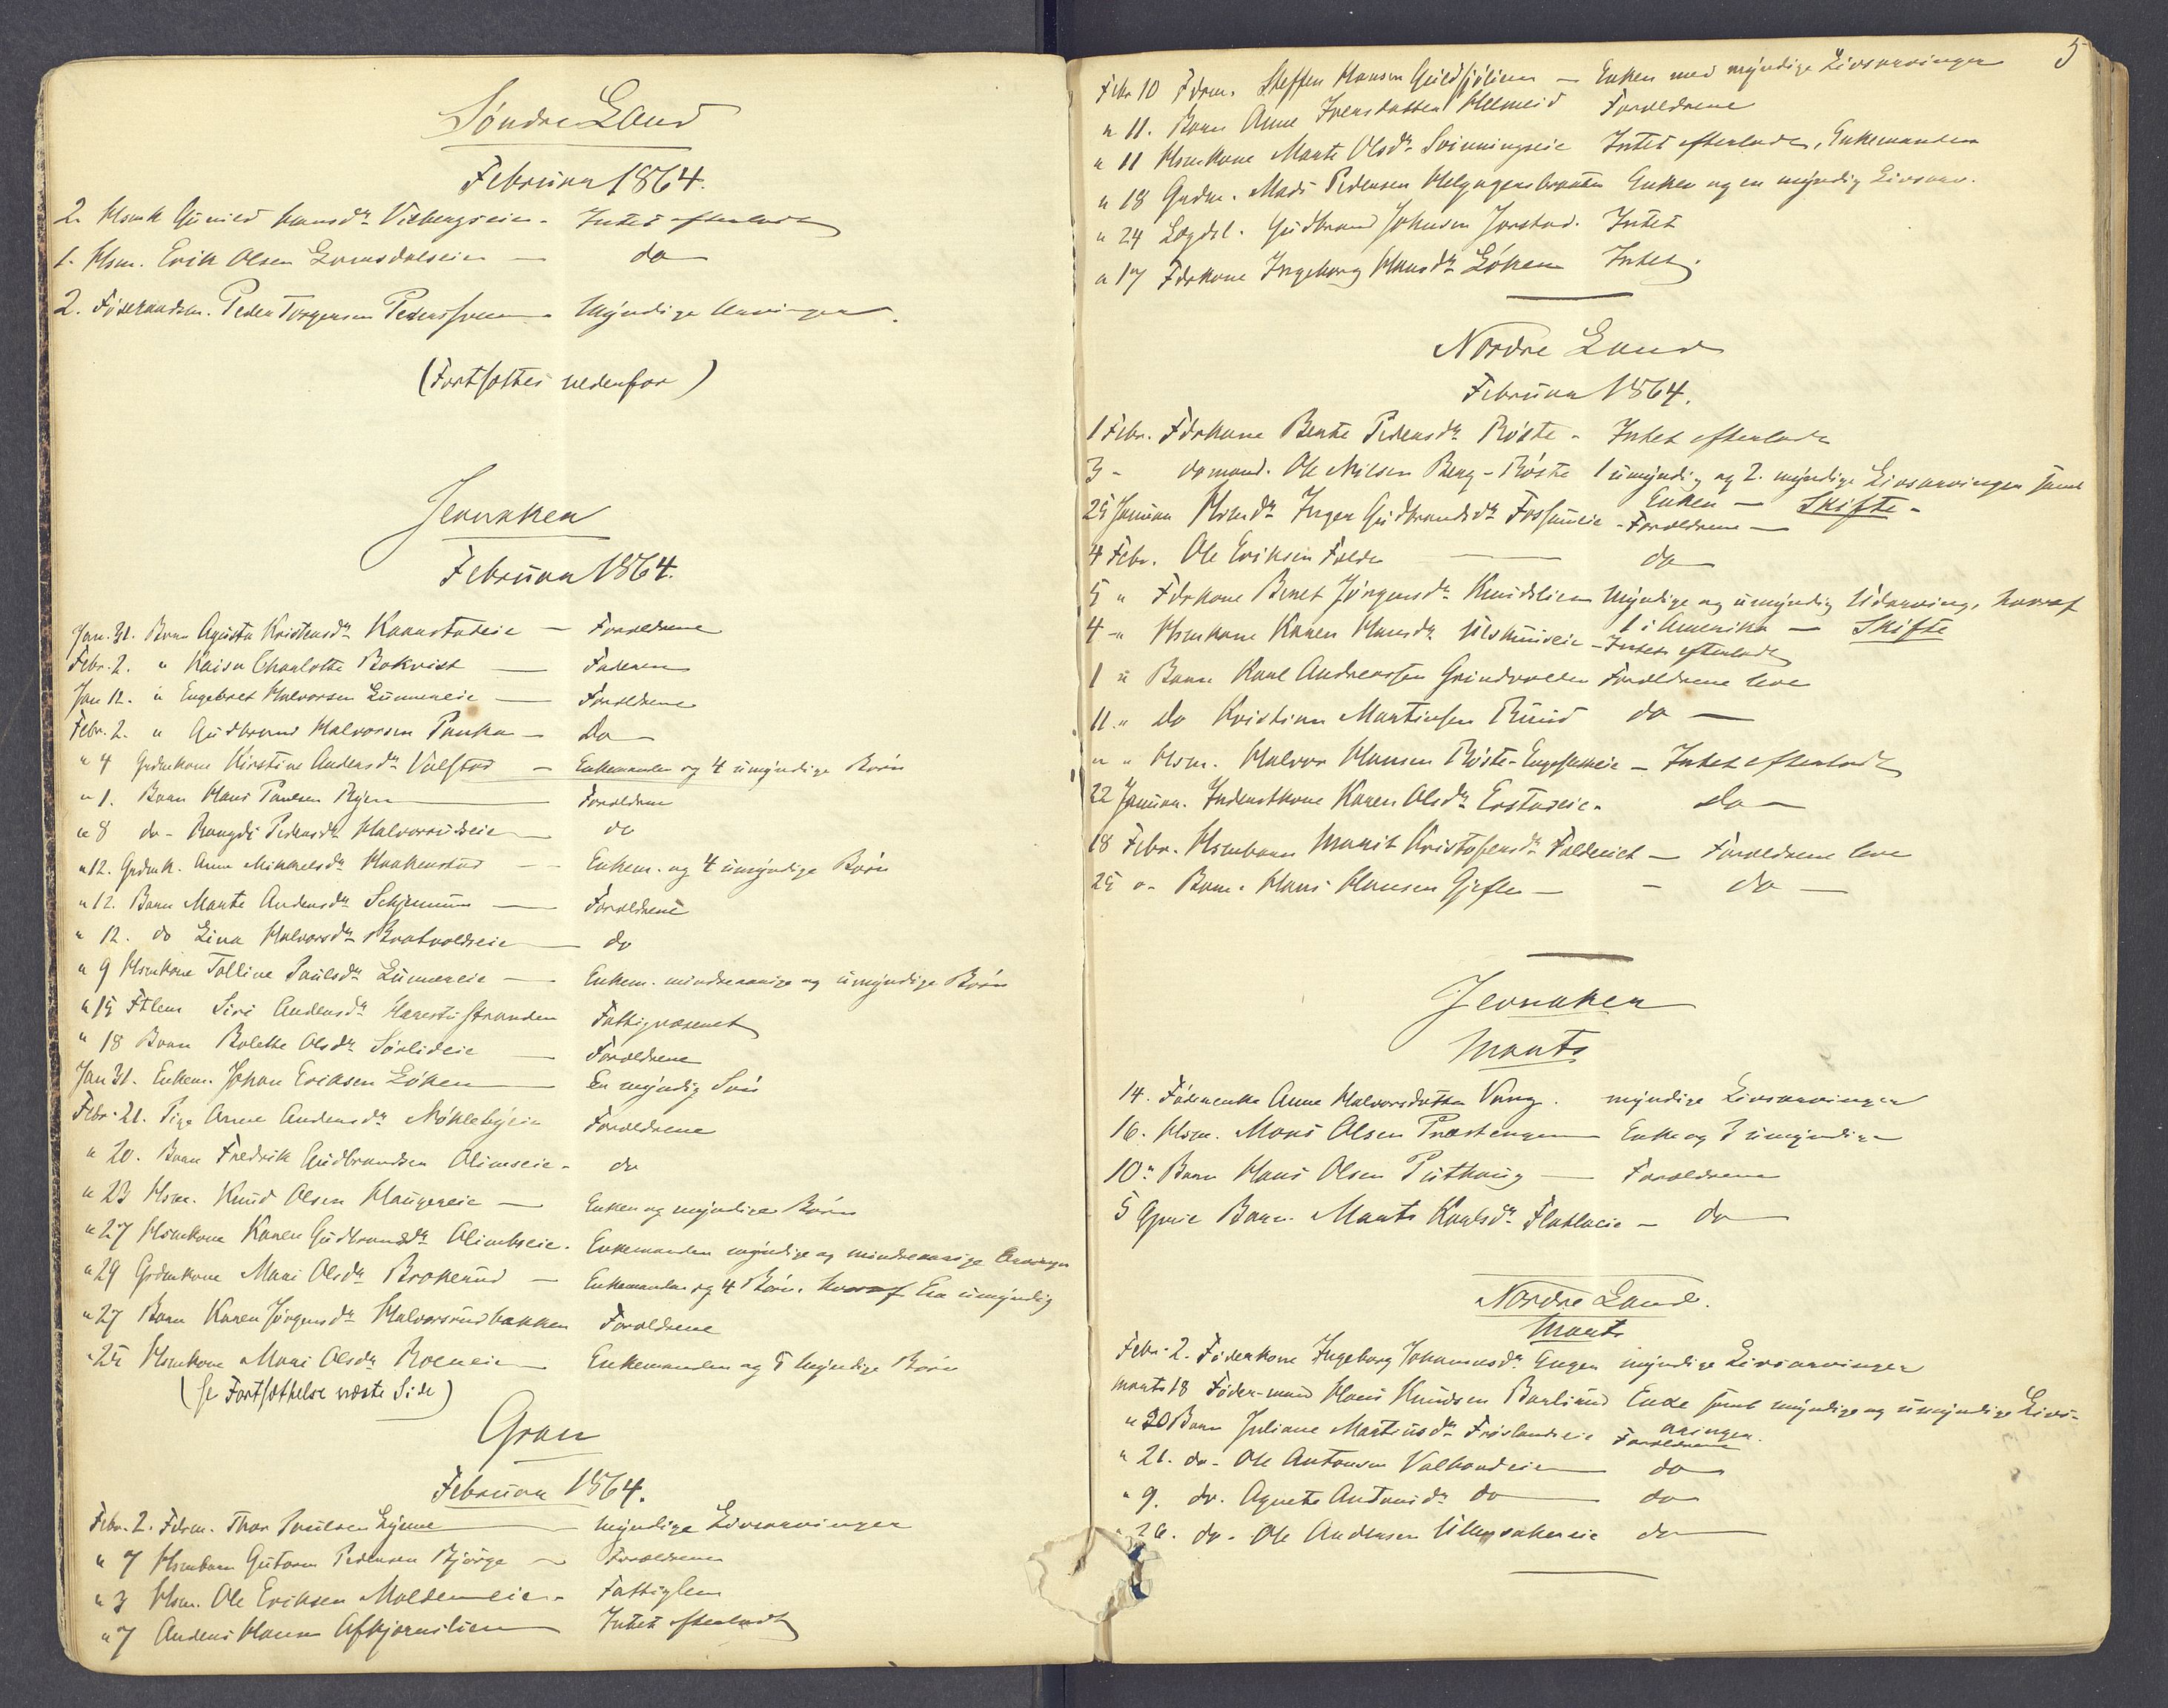 Søndre Land
Februar 1864.
2. Hsmk Gunild Hansdr Viebergseie - Intet efterladt
1. Hsm. Erik Olsen Lomsdalseie — do
2. Føderaadsm. Peder Torgersen Pedersh - Myndige Arvinger.
(Fortsættes nedenfor)
Jevnaker
Februar 1864.
Jan. 31. Barn Agusta Kristensdr Kaarstadeie — Forældrene
Febr. 2. " Kaisa Charlotte Bokvist — Faderen
Jan 12. " Engebret Halvorsen Lunnereie — Forældrene
Febr. 2. " Gudbrand Halvorsen — Do
" 4 Grdmkone Kirstine Andersdr Vulstad — Enkemanden og 4 umyndige Børn
" 1. Barn Hans Paulsen — Forældrene
" 8 do - Rangdi Pedersdr Halvorsrudeie — do
" 12. Grdmk. Anne Mikkelsdr Haakenstad — Enkem. og 4 umyndige Børn
" 12. Barn Marte Andersdr — Forældrene
" 12. do Lina Halvorsdr Bratvoldseie — do
" 9 Hsmkone Tolline Paulsdr Lunnereie — Enkem. mindreaarige og umyndige Børn
" 15 Ftlem Siri Andersdr Harestustranden Fattigvæsenet
" 18 Barn Bolette Olsdr Sørlideie — Forældrene
Jan 31. Enkem. Johan Eriksen Løken — En myndig Søn
Febr. 21. Pige Anne Andersdr Nøklebyeie Forældrene
" 20. Barn Fredrik Gudbrandsen Olimseie - do
" 23 Hsm. Knud Olsen Haugereie — Enken og myndige Børn
" 27 Hsmkone Karen Gudbrandsdr Olimbseie. Enkemanden myndige og mindreaarige Arvinger
" 29 Grdmkone Mari Olsdr Brokerud — Enkemanden og 4 Børn, hvoraf En umyndig
" 27 Barn Karen Jørgensdr Halvorsrudbakken Forældrene
" 25 Hsmkone Mari Olsdr — Enkemanden og 5 Myndige Børn
(se Fortsættelse næste Side)
Gran
Februar 1864.
Febr. 2. Fdrm. Thor Poulsen — Myndige Livsarvinger
" 7 Hsmbarn Gutorm Pedersen Bjørge — Forældrene
" 3 Hsm. Ole Eriksen — Fattiglem
" 7 Anders Hansen — Intet efterladt
5
Febr 10 Fdrm. Steffen Hansen — Enken med myndige Livsarvinger
" 11. Barn Anne Iversdatter Helmeid Forældrene
" 11 Hsmkone Marte Olsdr Svinningseie Intet efterladt, Enkemanden
" 18 Grdm. Mads Pedersen Enken og en myndig Livsarv.
" 24 Lægdsl. Gudbrand Johnsen Jorstad. Intet
" 17 Fdrkone Ingeborg Hansdr Løken Intet.
Nordre Land
Februar 1864.
1 Febr. Fdrkone Berte Pedersdr Røste - Intet efterladt
3 - do mand. Ole Nilsen Berg - Røste 1 umyndig og 2. myndige Livsarvinger samt
Enken — Skifte -
25 Januar Hsmdr Inger Gudbrandsdr - Forældrene —
4 Febr. Ole Eriksen Folden — do
5 " Fdrkone Beret Jørgensdr Knudslien Myndige og umyndig Udarving, hvoraf
1 i Amerika — Skifte
4 - " Hsmkone Karen Hansdr - Intet efterladt
1 " Barn Karl Andreassen Grindvolden Forældrene leve
11. " do Kristian Martinsen Ruud do —
" " Hsm. Halvor Hansen Røste - — Intet efterladt
22 Januar. Inderstkone Karen Olsdr - Do —
18 Febr. Hsmbarn Marit Kristofersdr — Forældrene leve
25 " - Barn. Hans Hansen — - do —
Jevnaker
Marts
14. Føderenke Anne Halvorsdatter Vang. myndige Livsarvinger
16. Hsm. Mons Olsen Præstengen Enke og 3 umyndige
10 " Barn Hans Olsen Puthaug — Forældrene
5 April Barn. Marte Karlsdr Flatlaeie — do
Nordre Land.
Marts
Febr. 2. Føderkone Ingeborg Johannesdr Engen myndige Livsarvinger
Marts 18 Føder-mand Hans Knudsen Barlund Enke samt myndige og umyndige Livs-
arvinger.
" 20 Barn Juliane Martinsdr Frøslandseie Forældrene
" 21. do - Ole Antonsen — do
" 9. do. Agnete Antonsdr do — do
" 26. do - Ole Andersen do —